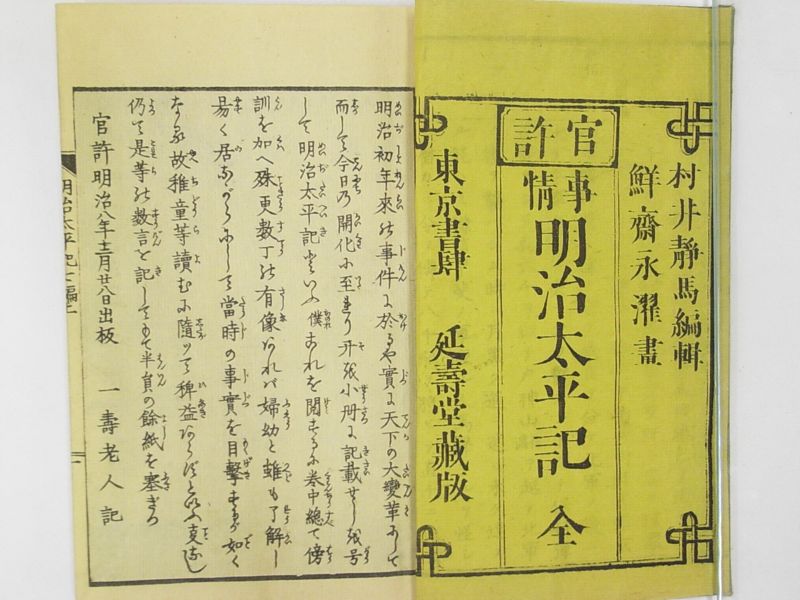 村井靜馬編輯
鮮齋永濯畫
官許
事情
明治太平記 全
東京書肆 延壽堂藏版
明治初年來の事件に於るや實に天下の大變革にして
而して今日の開化に至れり 小册に記載せし 号
して明治太平記といふ僕これを閲するに卷中總て傍
訓を加へ殊更数丁の有像あれバ婦幼と雖も了解し
易く居ながらにして當時の事實を目擊するが如く
故稚童等讀むに隨ッて稗益
仍て是等の数言を記してもて半頁の餘紙を塞ぎぬ
官許明治八年 月廿八日出板 一壽老人記
明治太平記 編